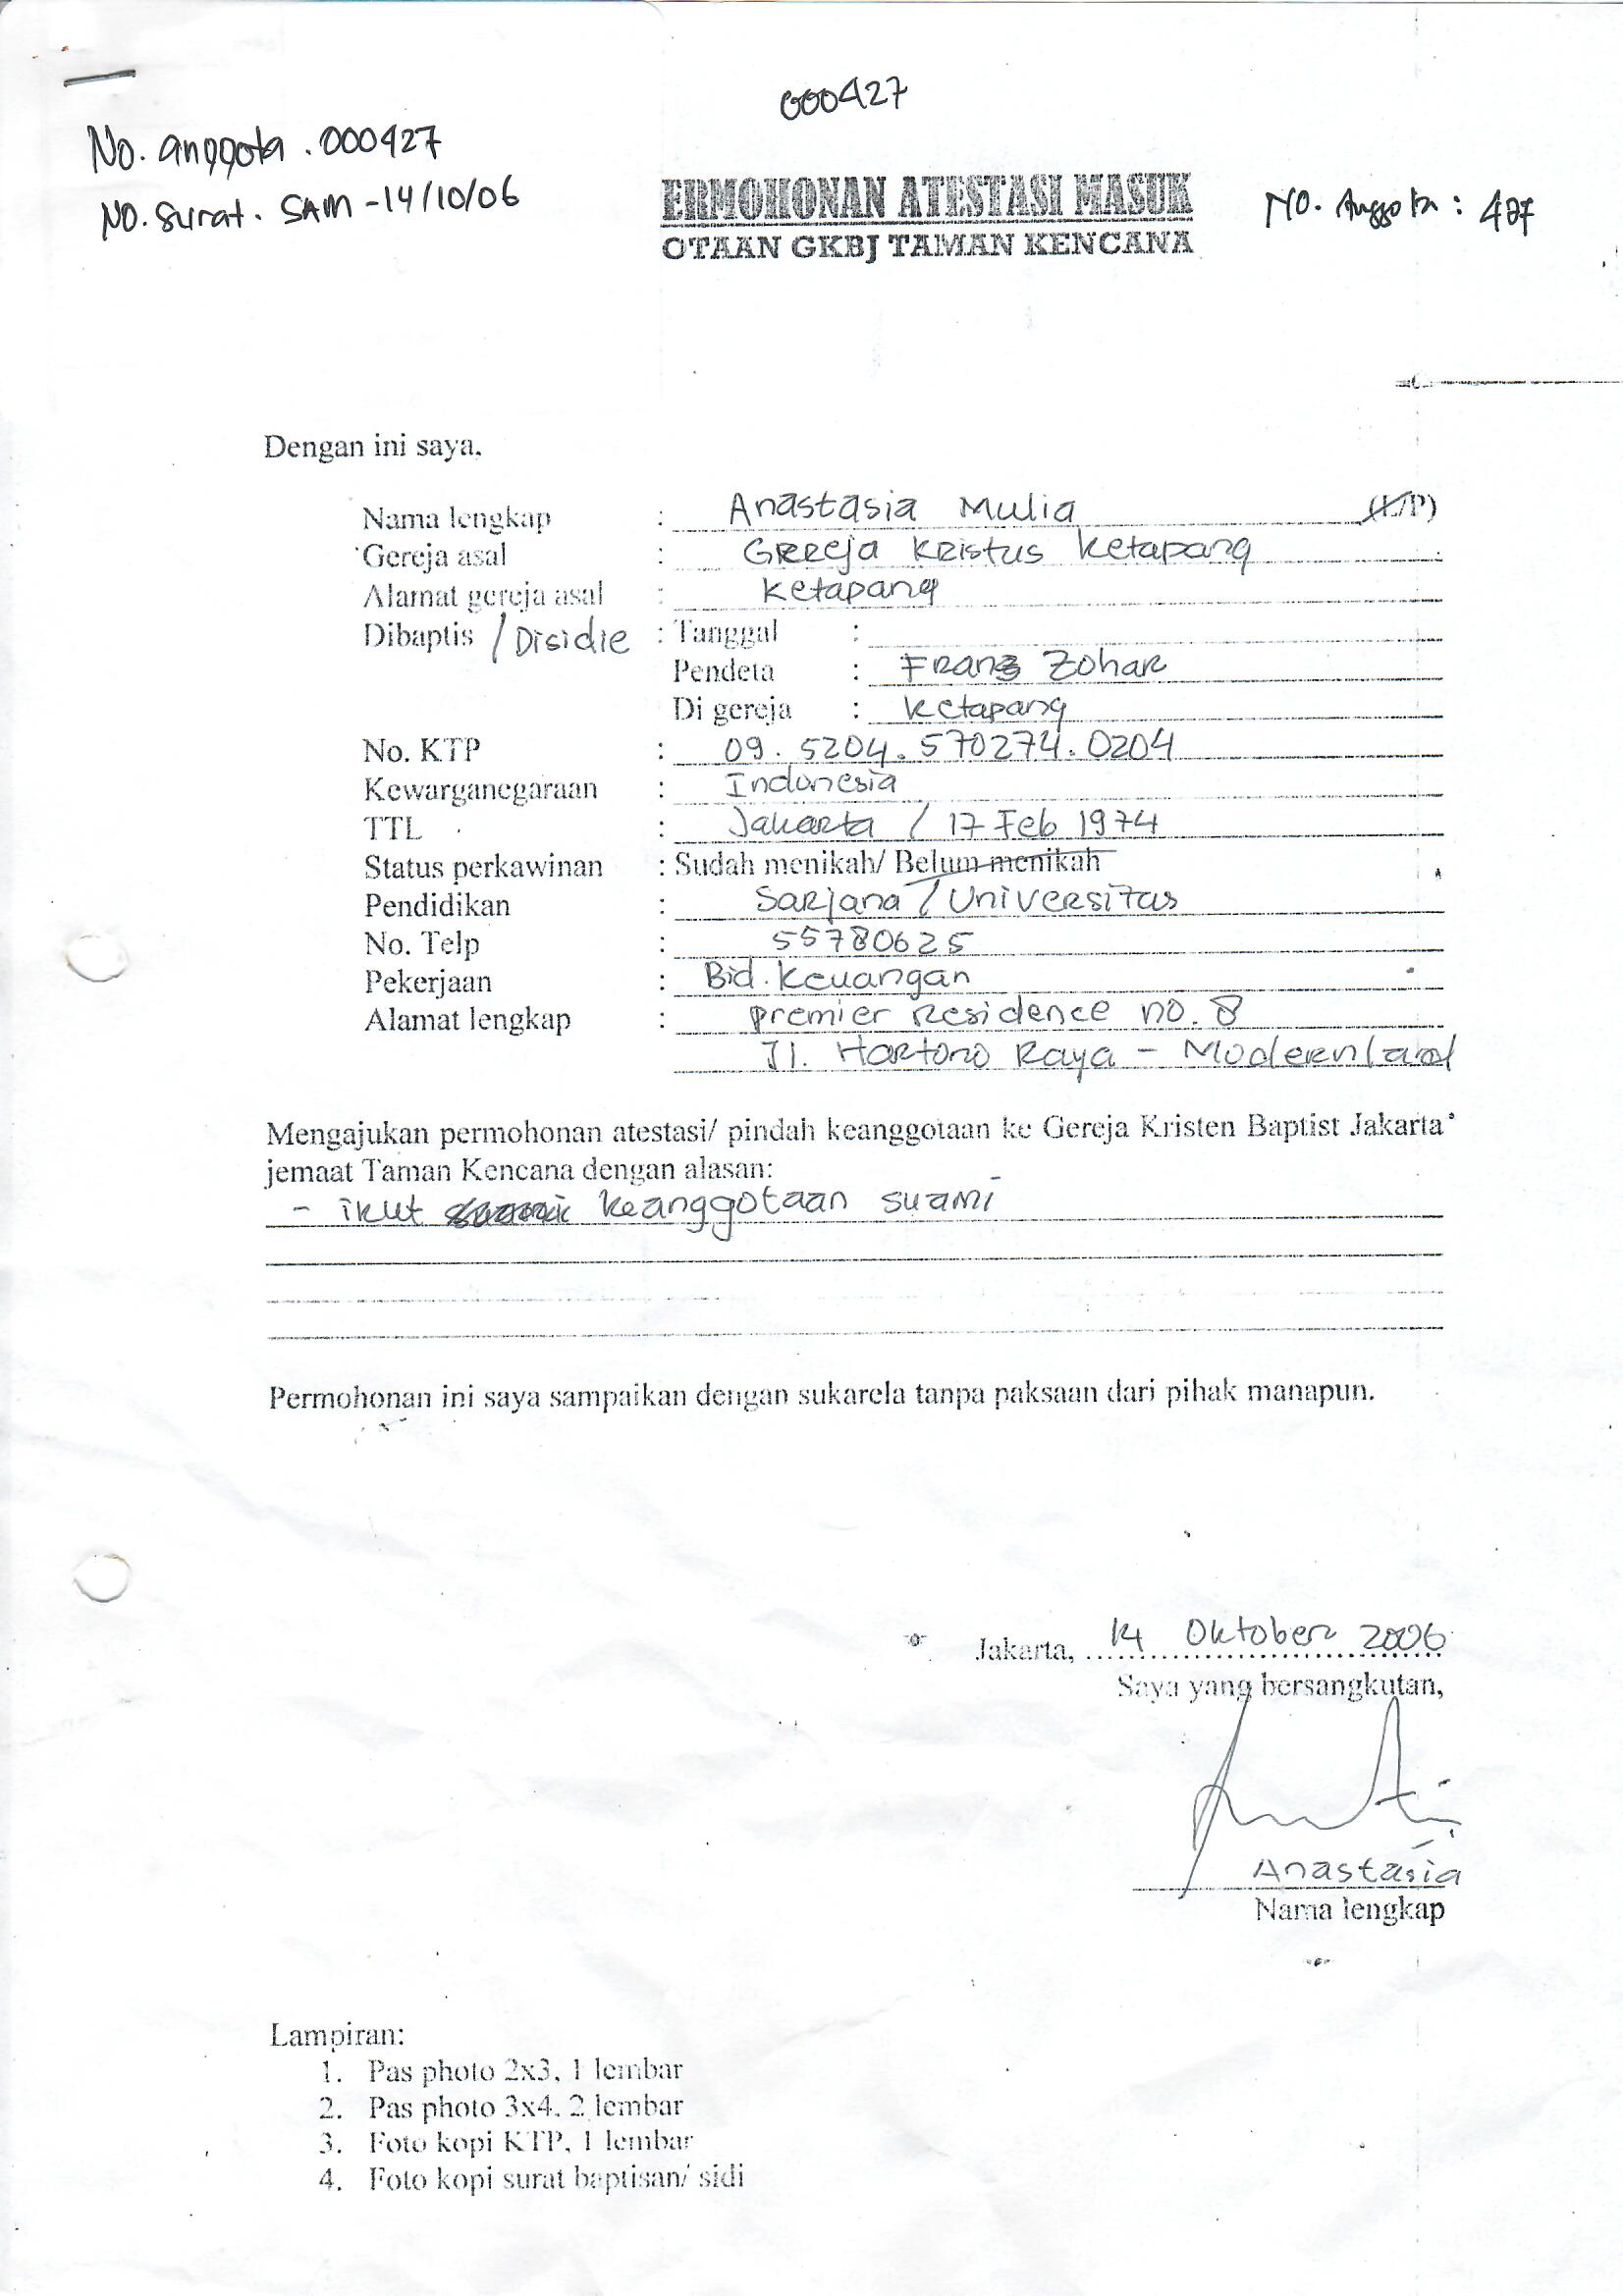 000427
No. anggota . 000427
No. Surat . SAM - 14/10/06
ERMOHONAN ATESTASI MASUK
OTAAN GKBJ TAMAN KENCANA
No. Anggota : 427
Dengan ini saya,
Nama lengkap : Anastasia Mulia (L/P)
Gereja asal : Gereja Kristus Ketapang
Alamat gereja asal : Ketapang
Dibaptis / Disidie : Tanggal :
Pendeta : Frans Zohar
Di gereja : Ketapang
No. KTP : 09.5204.570274.0204
Kewarganegaraan : Indonesia
TTL : Jakarta / 17 Feb 1974
Status perkawinan : Sudah menikah/ Belum menikah
Pendidikan : Sarjana / Universitas
No. Telp : 55780625
Pekerjaan : Bid. Keuangan
Alamat lengkap : premier Residence no. 8
Jl. Hartono Raya - Modernland
Mengajukan permohonan atestasi/ pindah keanggotaan ke Gereja Kristen Baptist Jakarta
jemaat Taman Kencana dengan alasan:
- ikut keanggotaan suami
Permohonan ini saya sampaikan dengan sukarela tanpa paksaan dari pihak manapun.
Jakarta, 14 Oktober 2006
Saya yang bersangkutan,
Anastasia
Nama lengkap
Lampiran:
1. Pas photo 2x3, 1 lembar
2. Pas photo 3x4, 2 lembar
3. Foto kopi KTP, 1 lembar
4. Foto kopi surat baptisan/ sidi